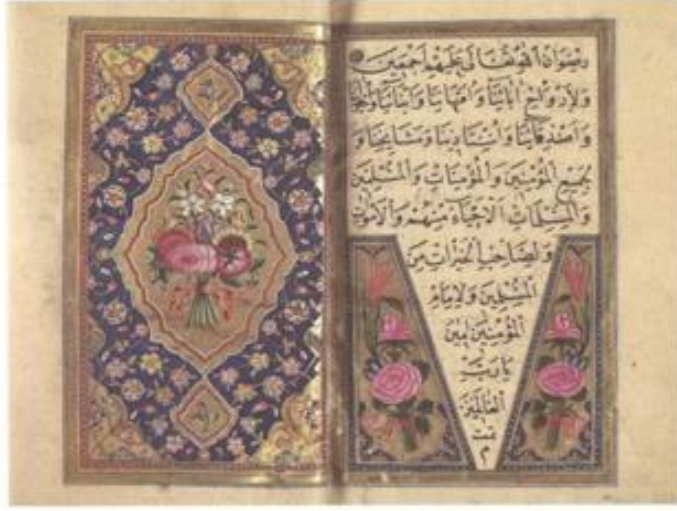 رضوان الله تعالى عليهم اجمعين
ولارواح ابائنا وامهاتنا وابنائنا
واصدقائنا واستادينا ومشايخنا و
لجميع المؤمنين والمؤمنات والمسلمين
والمسلمات الاحياء منهم والاموات
ولصاحب الخيرات من
المسلمين ولامام
المؤمنين امين
يا رب
العالمين
تمت
م